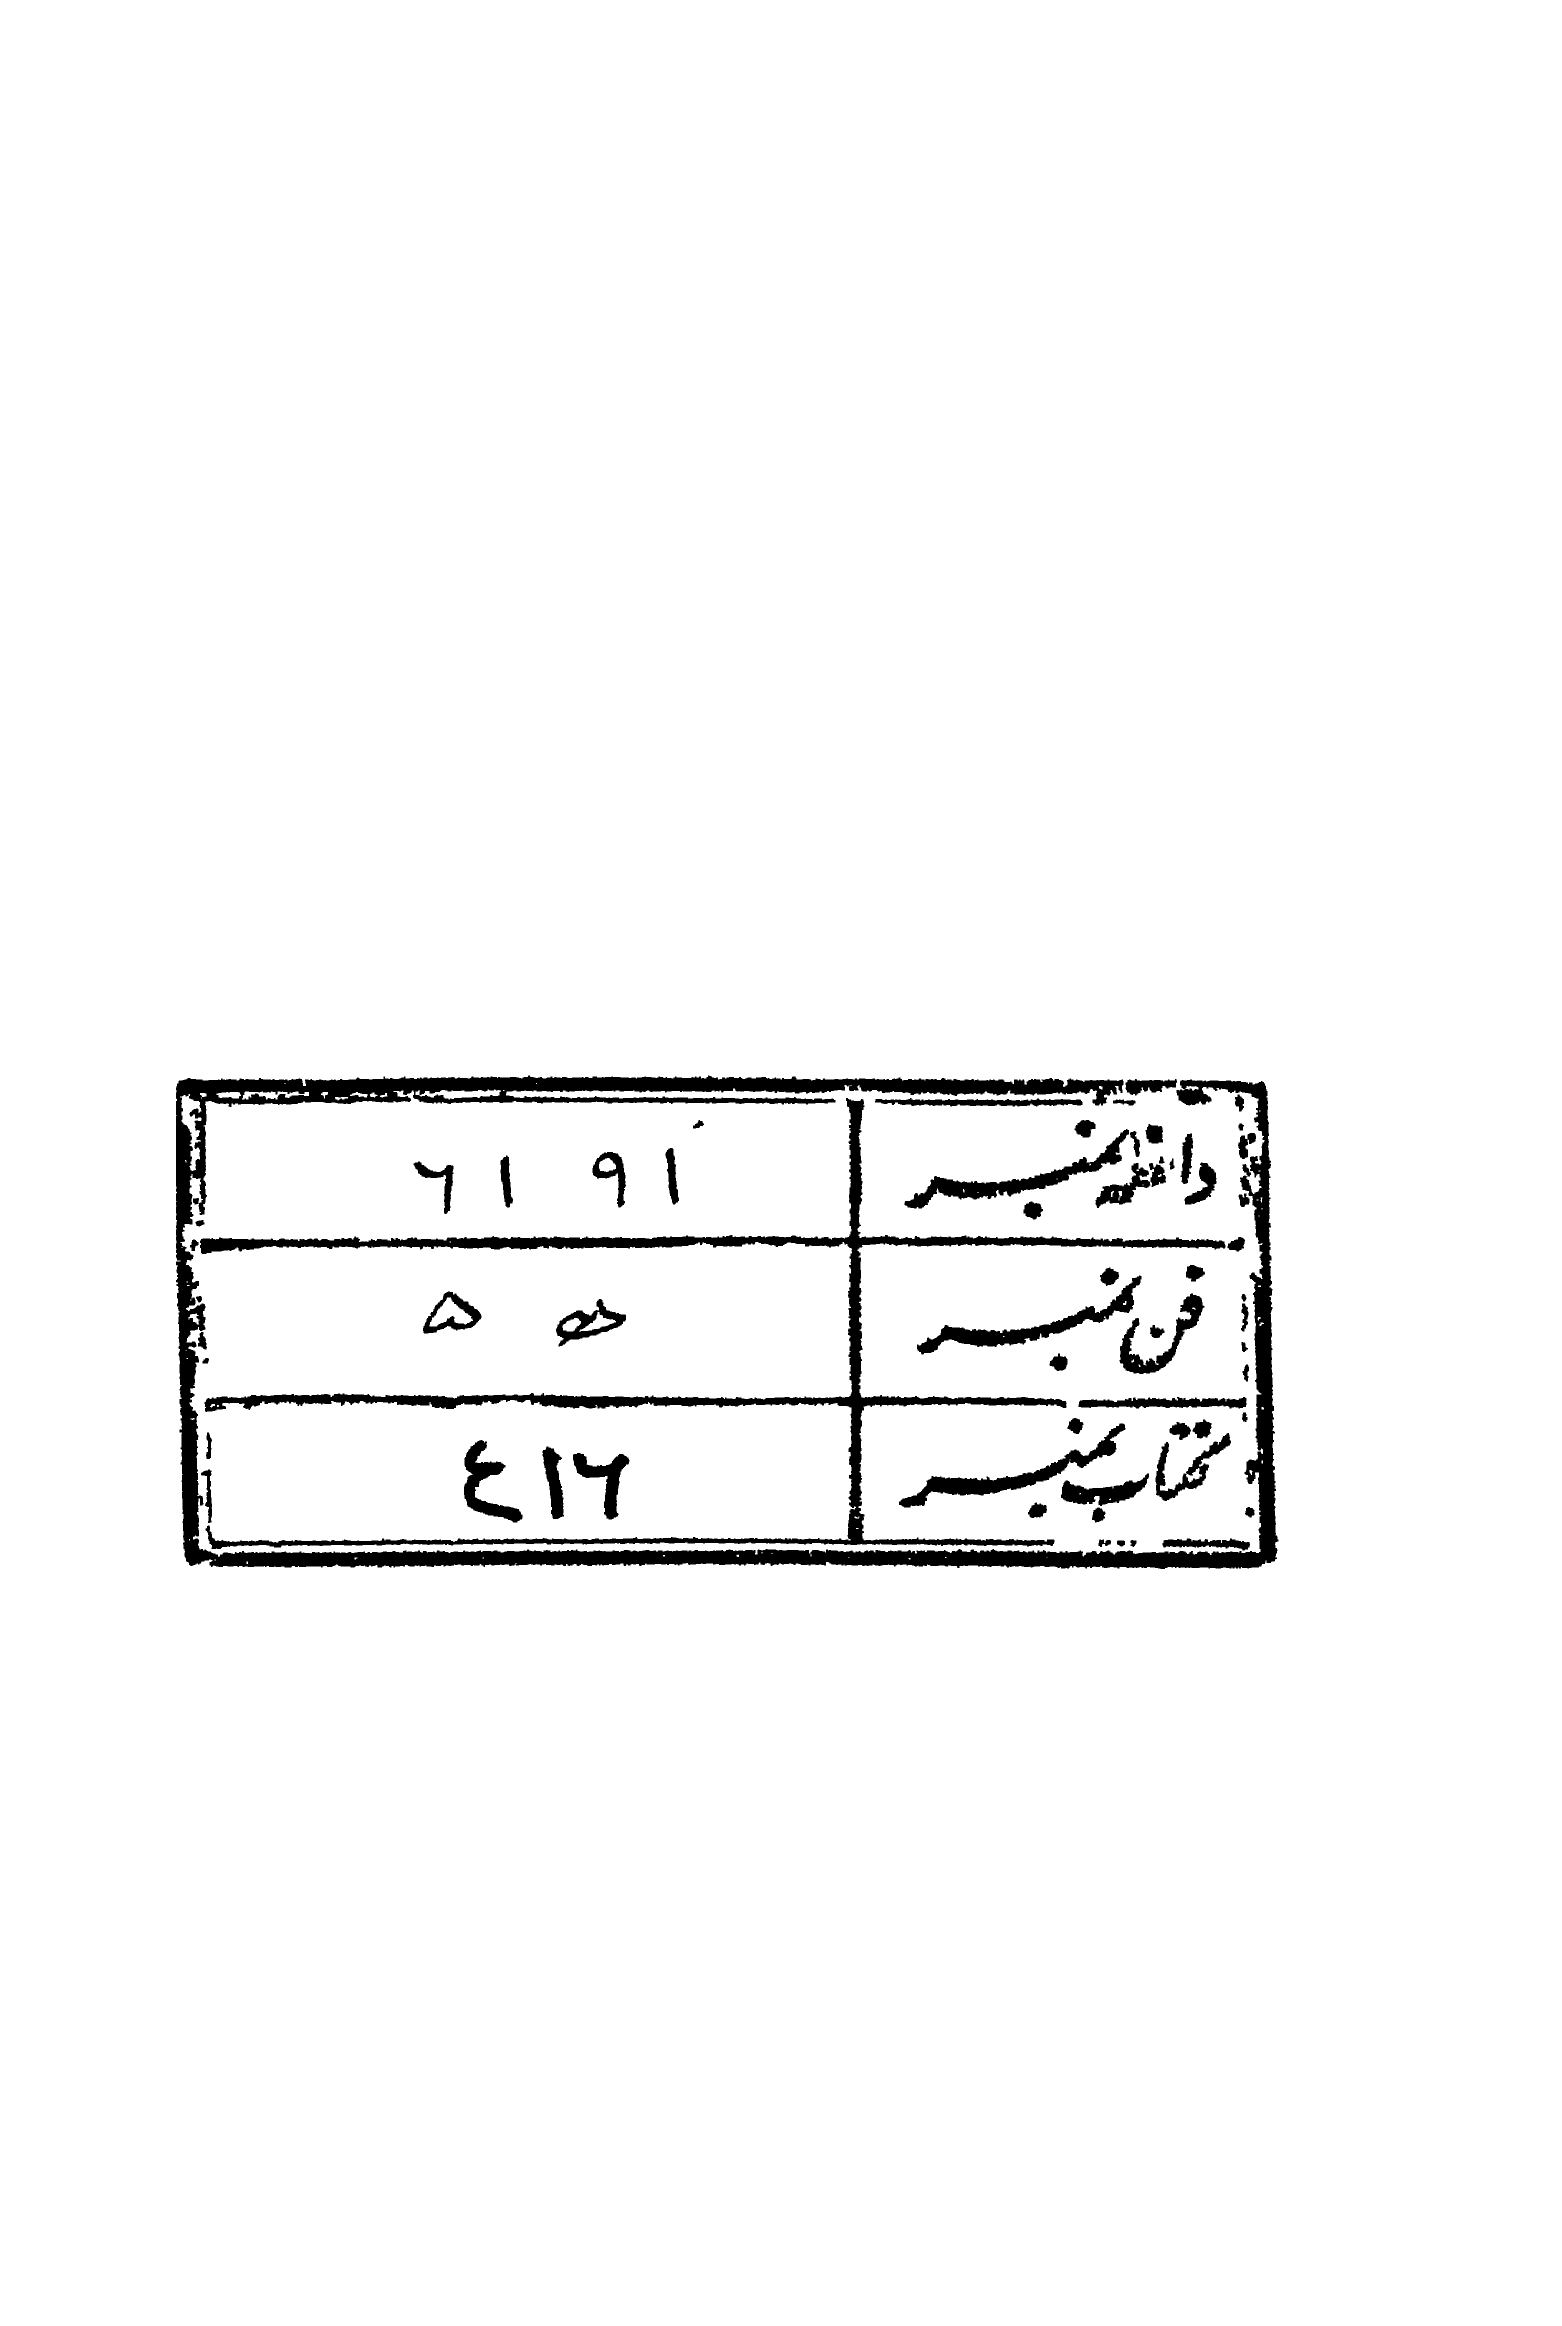 داخلہ نمبر ٦١ ٩١
فن نمبر ۵
کتاب نمبر ٤١٢